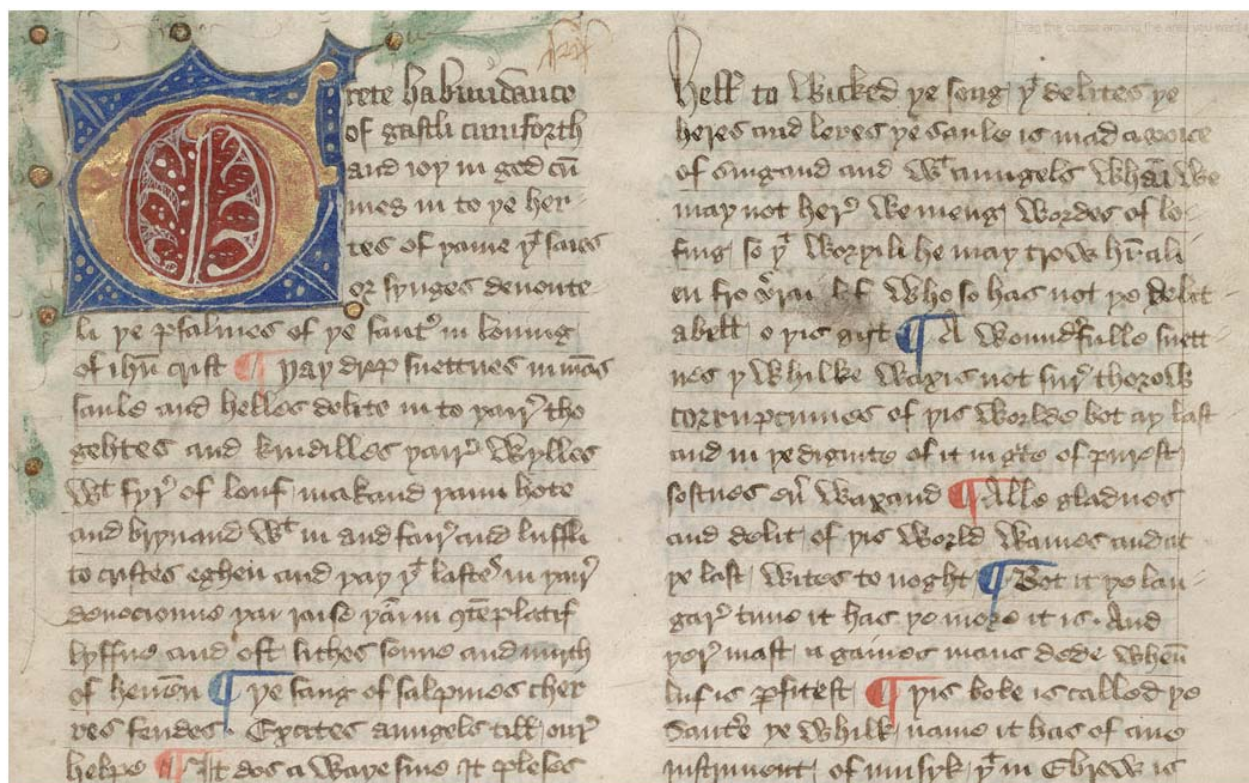 Grete habundance
of gastli cumforth
and ioy in god cū
mes in to ye her-
tes of yame yt saies
or synges deuoute-
li ye psalmes of ye sautr in louing
of ihū crist ¶ yay drop suettnes in mās
saule and helles delite in to yair tho
gehtes and kindilles yair wylles
wt fyr of louf makand yaim hote
and brynand wt in and fair and luffli
to cristes eghen and yay yt lastes in yair
deuocionne yai raise yām in cōtēplatif
lyffne and oft sithes sonne and mirth
of heuen ¶ ye sang of salpmes cher
res fendes. Excites aungels till our
helpe ¶ It dos a waye sine It qleses
hell to wicked ye song yt delites ye
heres and leres ye saule is mad a voice
of singand and wt aungels whām we
may not her we meng wordes of lo-
fing so yt woryili he may trow hī ali
en fro lif who so has not ye delit
abell o yis gift ¶ A woundrfulle suett-
nes y whilke waxis not sur thorow
corrupciunes of yis worlde bot ay last
and in ye dignite of it in of purest
softnes en waxand ¶ Alle gladnes
and delit of yis world waines and at
ye last wites to noght ¶ Bot it ye lan-
gar time it has ye more it is. And
yer mast a gaines mans dede when
luf is pfitest ¶ yis boke is called ye
Sautr ye whilk name it has of ane
instrument of musyk yt in Ebrew is